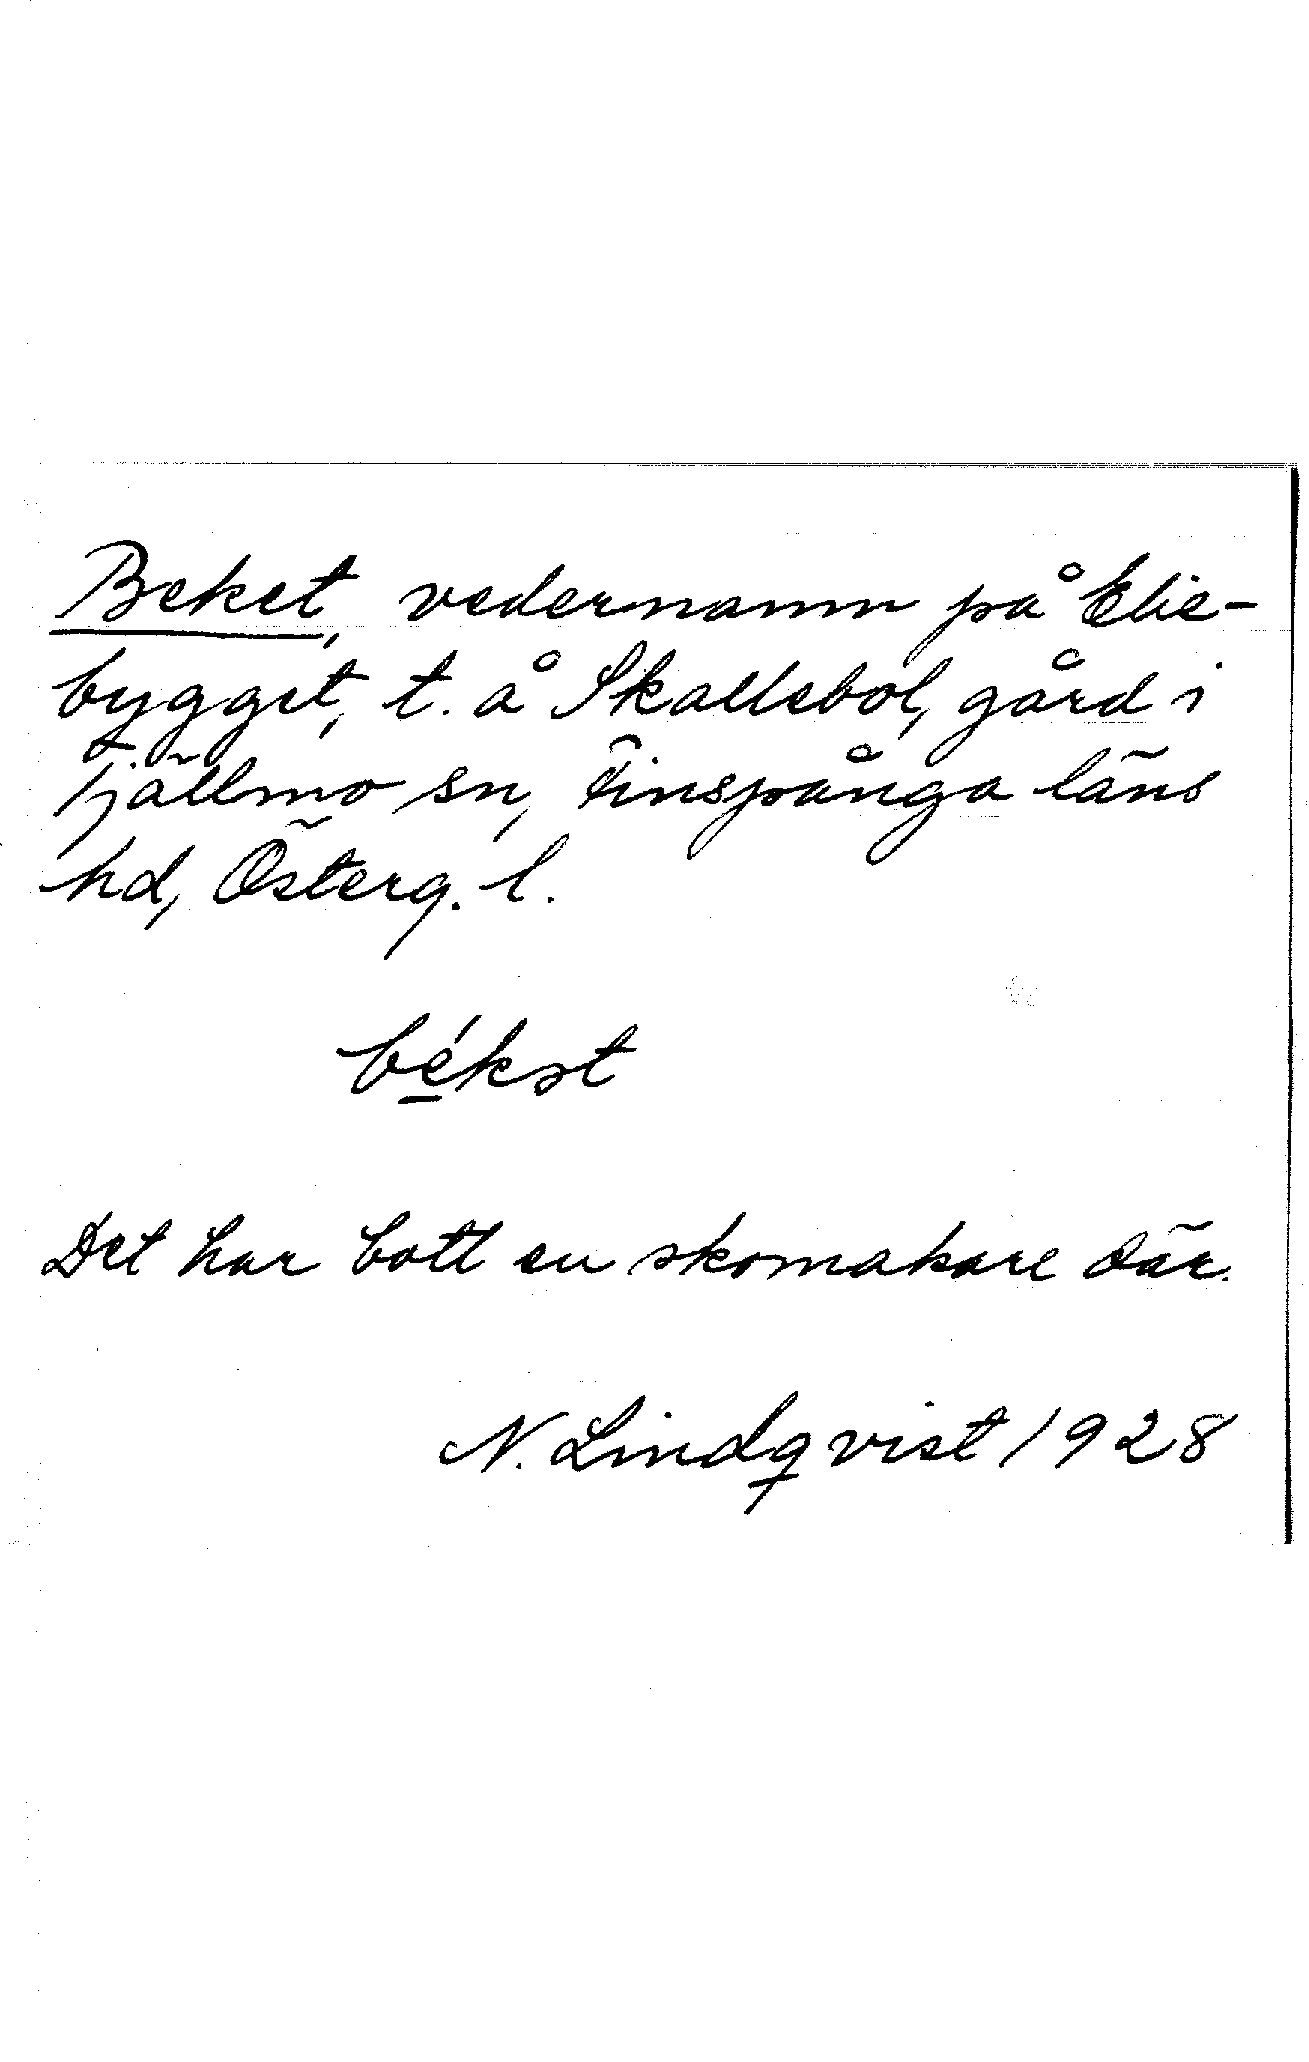 Beket, vedernamn på Elie-
bygget, t. å Skallebol, gård i
Tjällmo sn, Finspånga läns
hd, Österg. l.
békət
Det har bott en skomakare där.
N. Lindqvist 1928